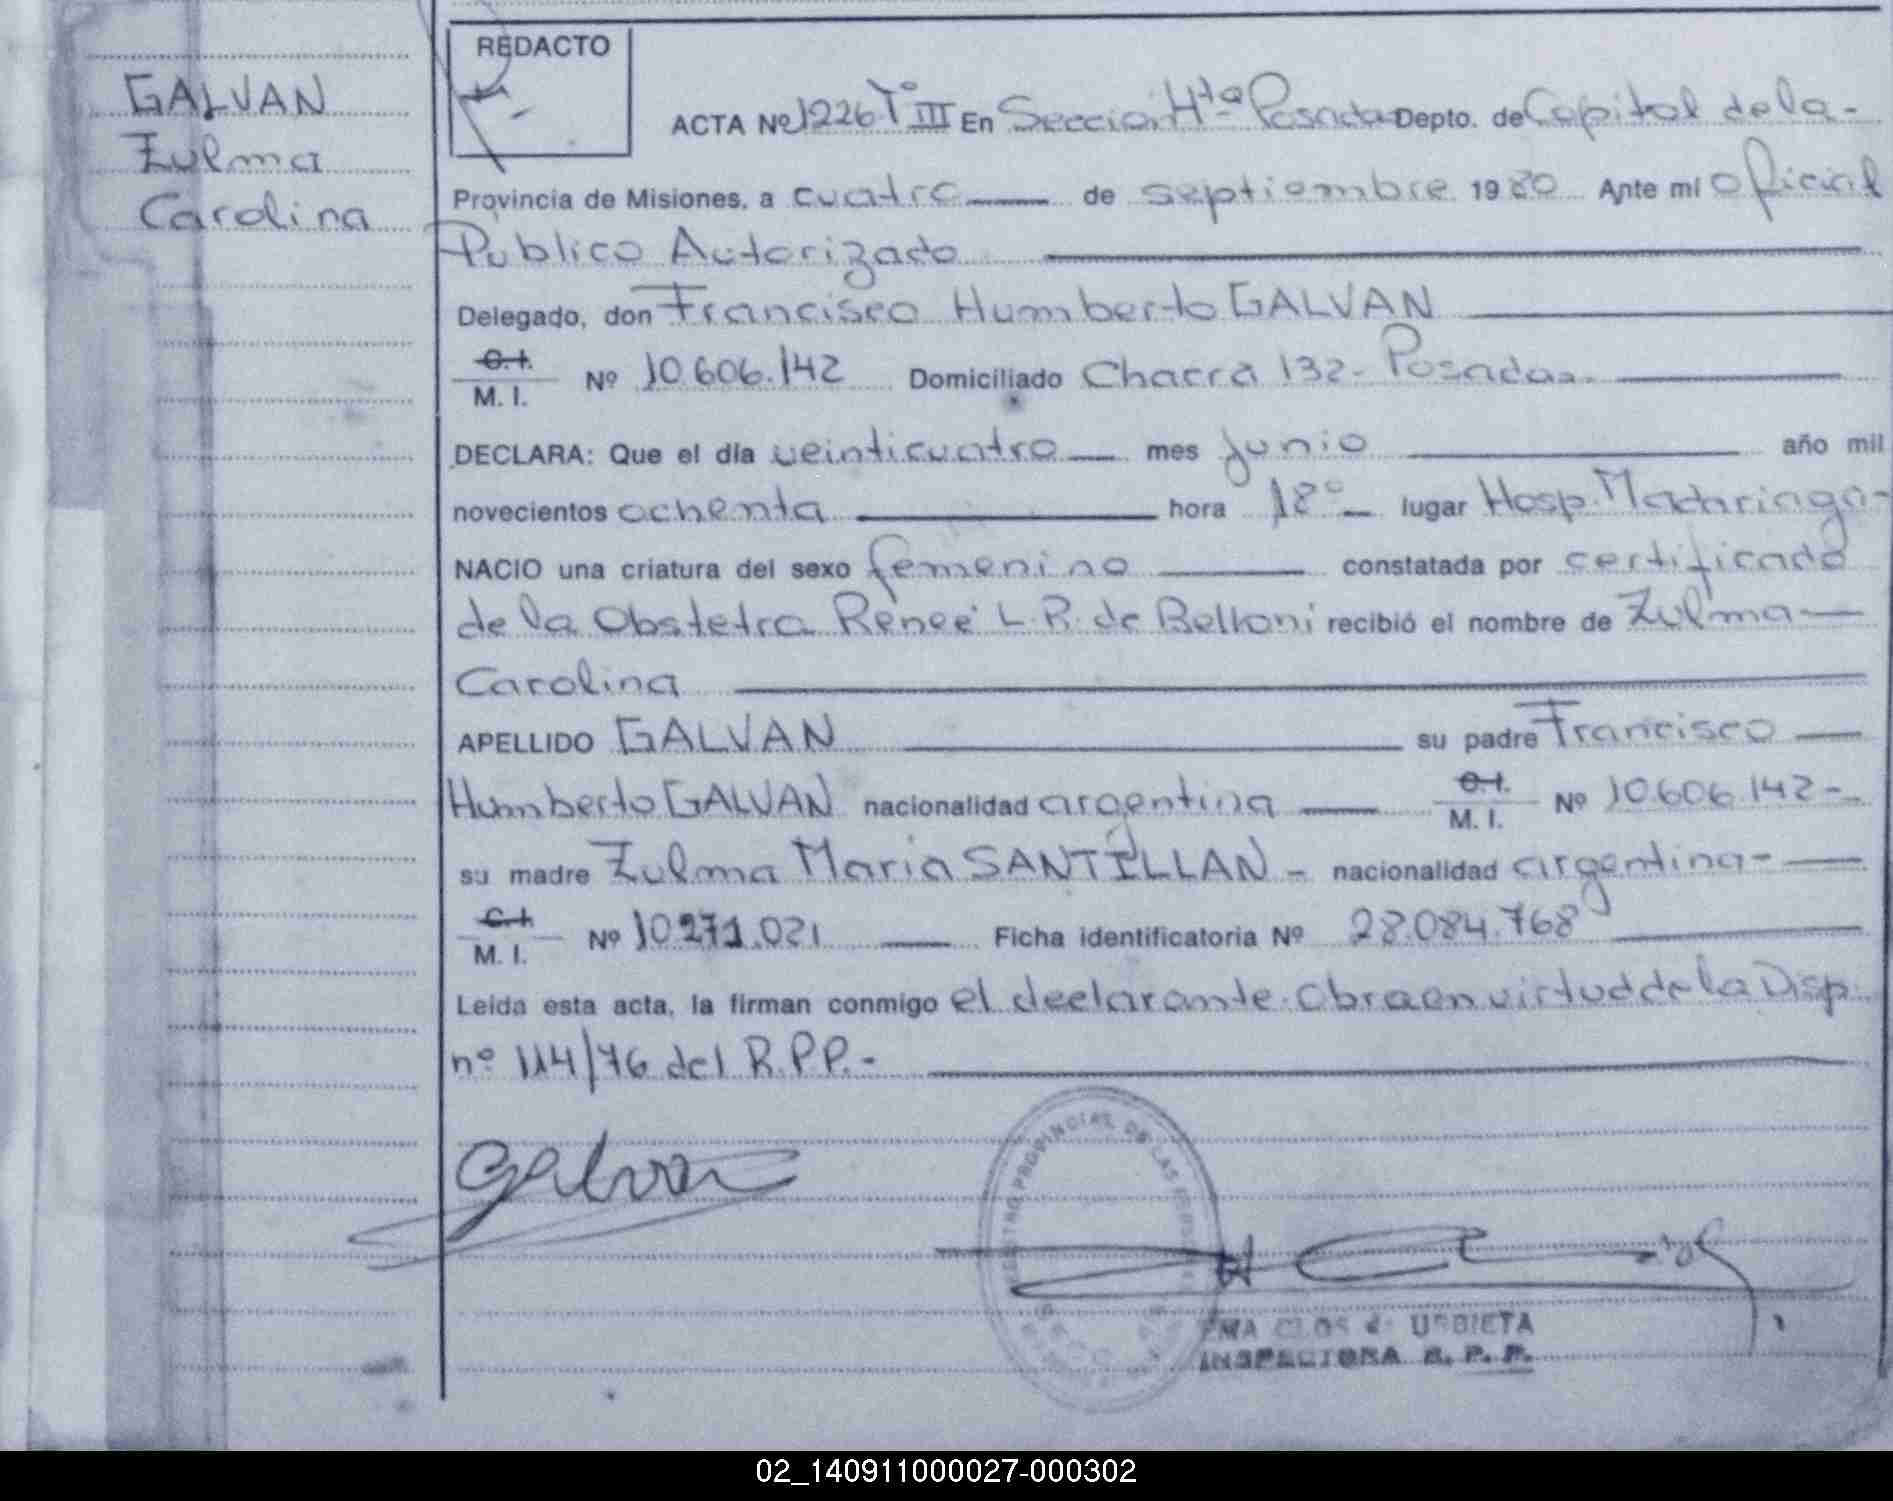 GALVAN
Zulma
Carolina
REDACTO
ACTA Nº 1226 Tº III En Sección Hta Posadas Depto. de Capital de la -
Provincia de Misiones, a cuatro de septiembre 1980 Ante mí Oficial
Publico Autorizado
Delegado, don Francisco Humberto GALVAN
C.I.
M. I. Nº 10.606.142 Domiciliado Chacra 132 - Posadas.
DECLARA: Que el día veinticuatro mes junio año mil
novecientos ochenta hora 18º lugar Hosp. Madariaga -
NACIO una criatura del sexo femenino constatada por certificado
de la Obstetra Reneé L. R. de Belloni recibió el nombre de Zulma
Carolina
APELLIDO GALVAN su padre Francisco
Humberto GALVAN nacionalidad argentina C.I. M. I. Nº 10.606.142 -
su madre Zulma Maria SANTILLAN - nacionalidad argentina -
C.I.
M. I. Nº 10.271.021 Ficha identificatoria Nº 28.084.768
Leída esta acta, la firman conmigo el declarante. Obra en virtud de la Disp.
nº 114/76 del R.P.P. -
Galvan
REGISTRO PROVINCIAL DE LAS PERSONAS
EMA CLOS de URBIETA
INSPECTORA R. P. P.
02_140911000027-000302